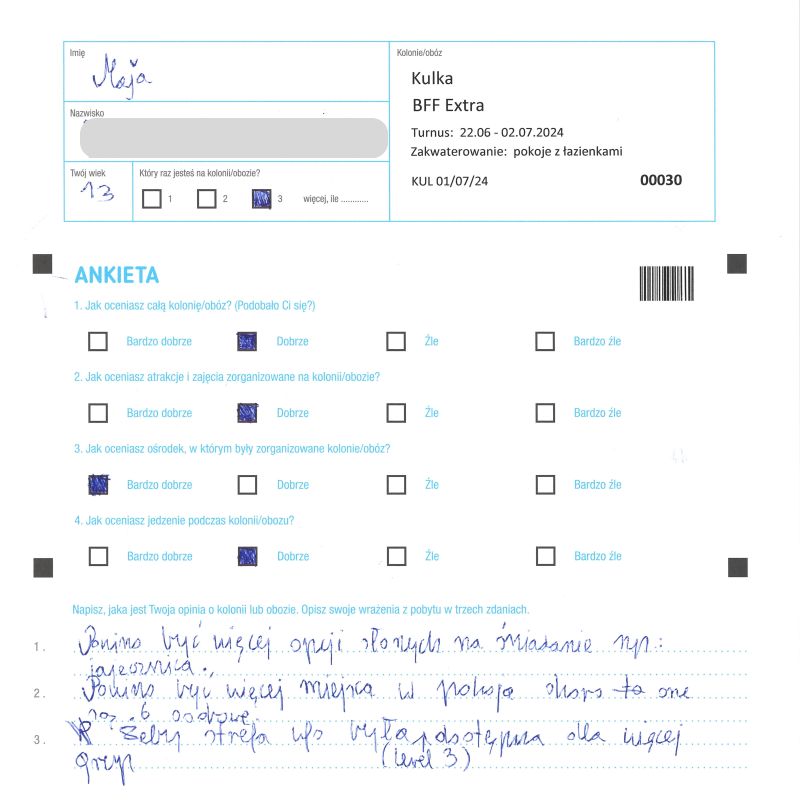 Imię
Maja
Nazwisko
Twój wiek
13
Który raz jesteś na kolonii/obozie?
1 2 3 więcej, ile ............
Kolonie/obóz
Kulka
BFF Extra
Turnus: 22.06 - 02.07.2024
Zakwaterowanie: pokoje z łazienkami
KUL 01/07/24 00030
ANKIETA
1. Jak oceniasz całą kolonię/obóz? (Podobało Ci się?)
Bardzo dobrze Dobrze Źle Bardzo źle
2. Jak oceniasz atrakcje i zajęcia zorganizowane na kolonii/obozie?
Bardzo dobrze Dobrze Źle Bardzo źle
3. Jak oceniasz ośrodek, w którym były zorganizowane kolonie/obóz?
Bardzo dobrze Dobrze Źle Bardzo źle
4. Jak oceniasz jedzenie podczas kolonii/obozu?
Bardzo dobrze Dobrze Źle Bardzo źle
Napisz, jaka jest Twoja opinia o kolonii lub obozie. Opisz swoje wrażenia z pobytu w trzech zdaniach.
1. być więcej opcji słonych na śniadanie np:
jajecznica.
2. być więcej miejsca w skoro to one
są 6 osobowe.
3. Żeby strefa ufo była dostępna dla więcej
grup (level 3)